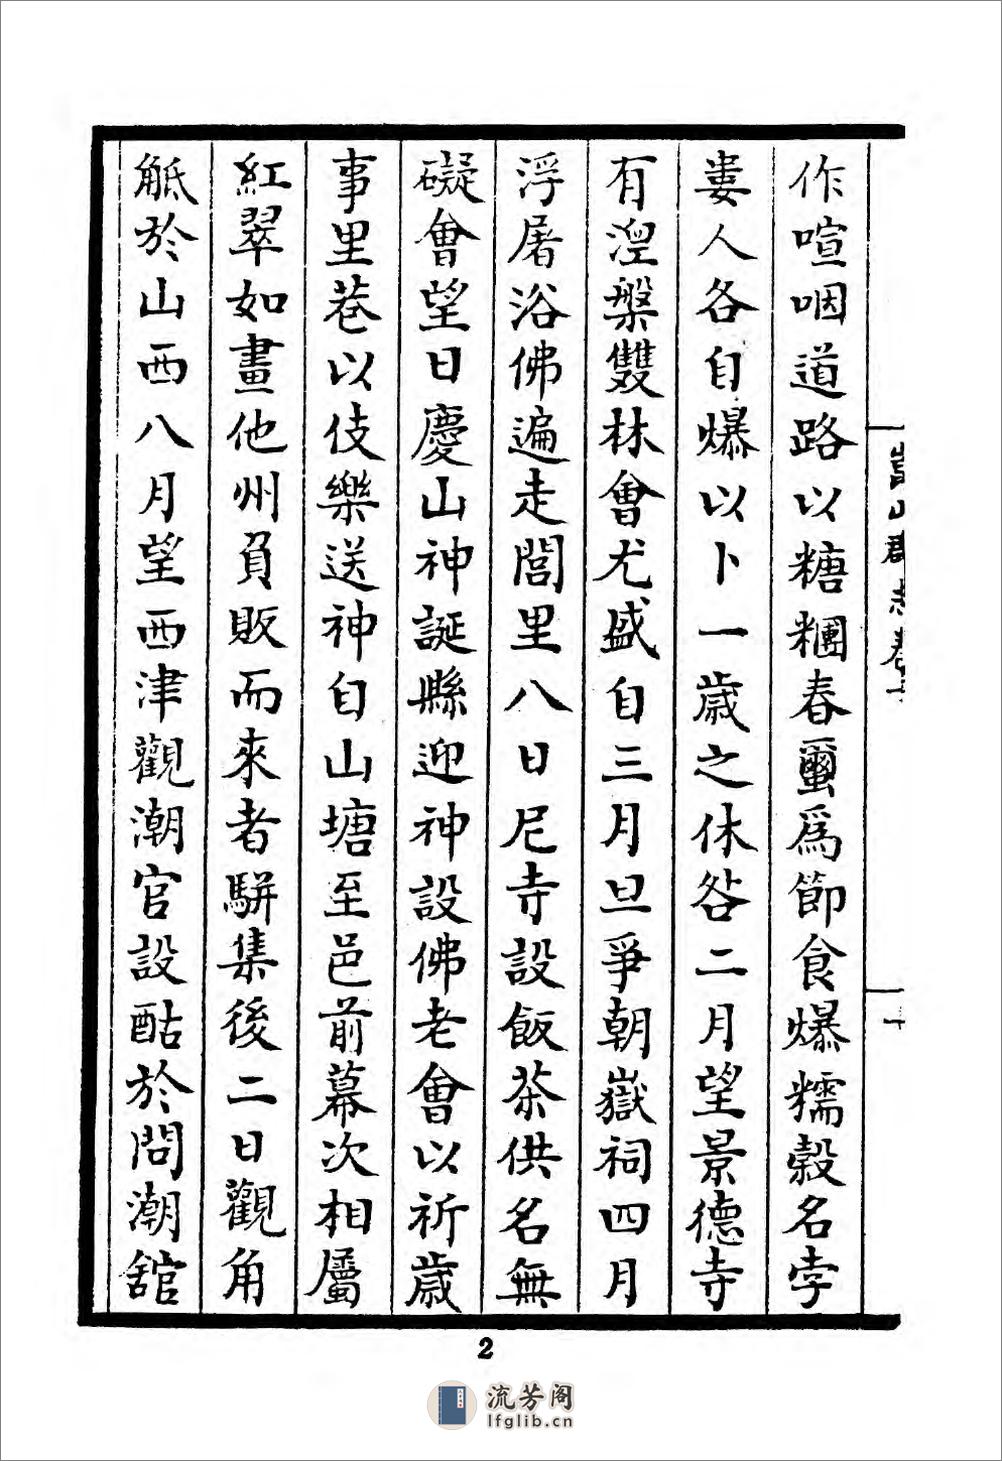 作喧咽道路以糖糰春蠒爲節食爆糯穀名孛
婁人各自爆以卜一歲之休咎二月望景德寺
有湼槃雙林會尤盛自三月旦爭朝嶽祠四月
浮屠浴佛遍走閭里八日尼寺設飯茶供名無
礙會望日慶山神誕縣迎神設佛老會以祈歲
事里巷以伎樂送神自山塘至邑前幕次相屬
紅翠如畫他州負販而來者駢集後二日觀角
觝於山西八月望西津觀潮官設酤於問潮舘
山郡志卷
2
流芳阁
lfglib.cn